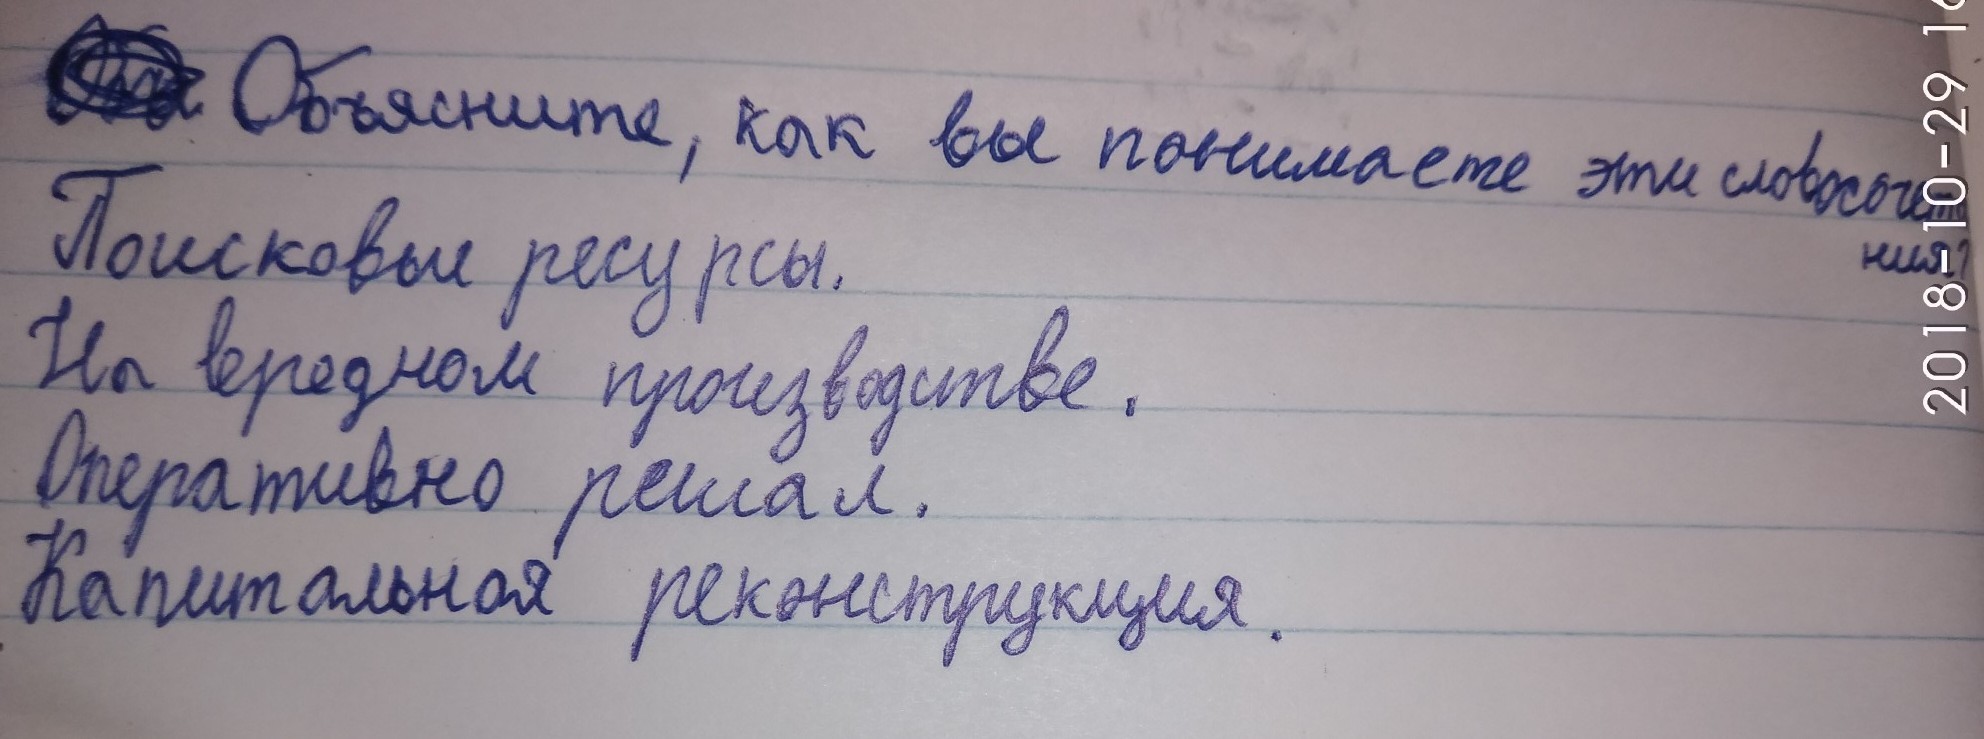 Объясните, как вы понимаете эти словосочета
ния?
Поисковые ресурсы.
На вередном производстве.
Оперативно решал.
Капитальная реконструкция.
2018-10-29 16